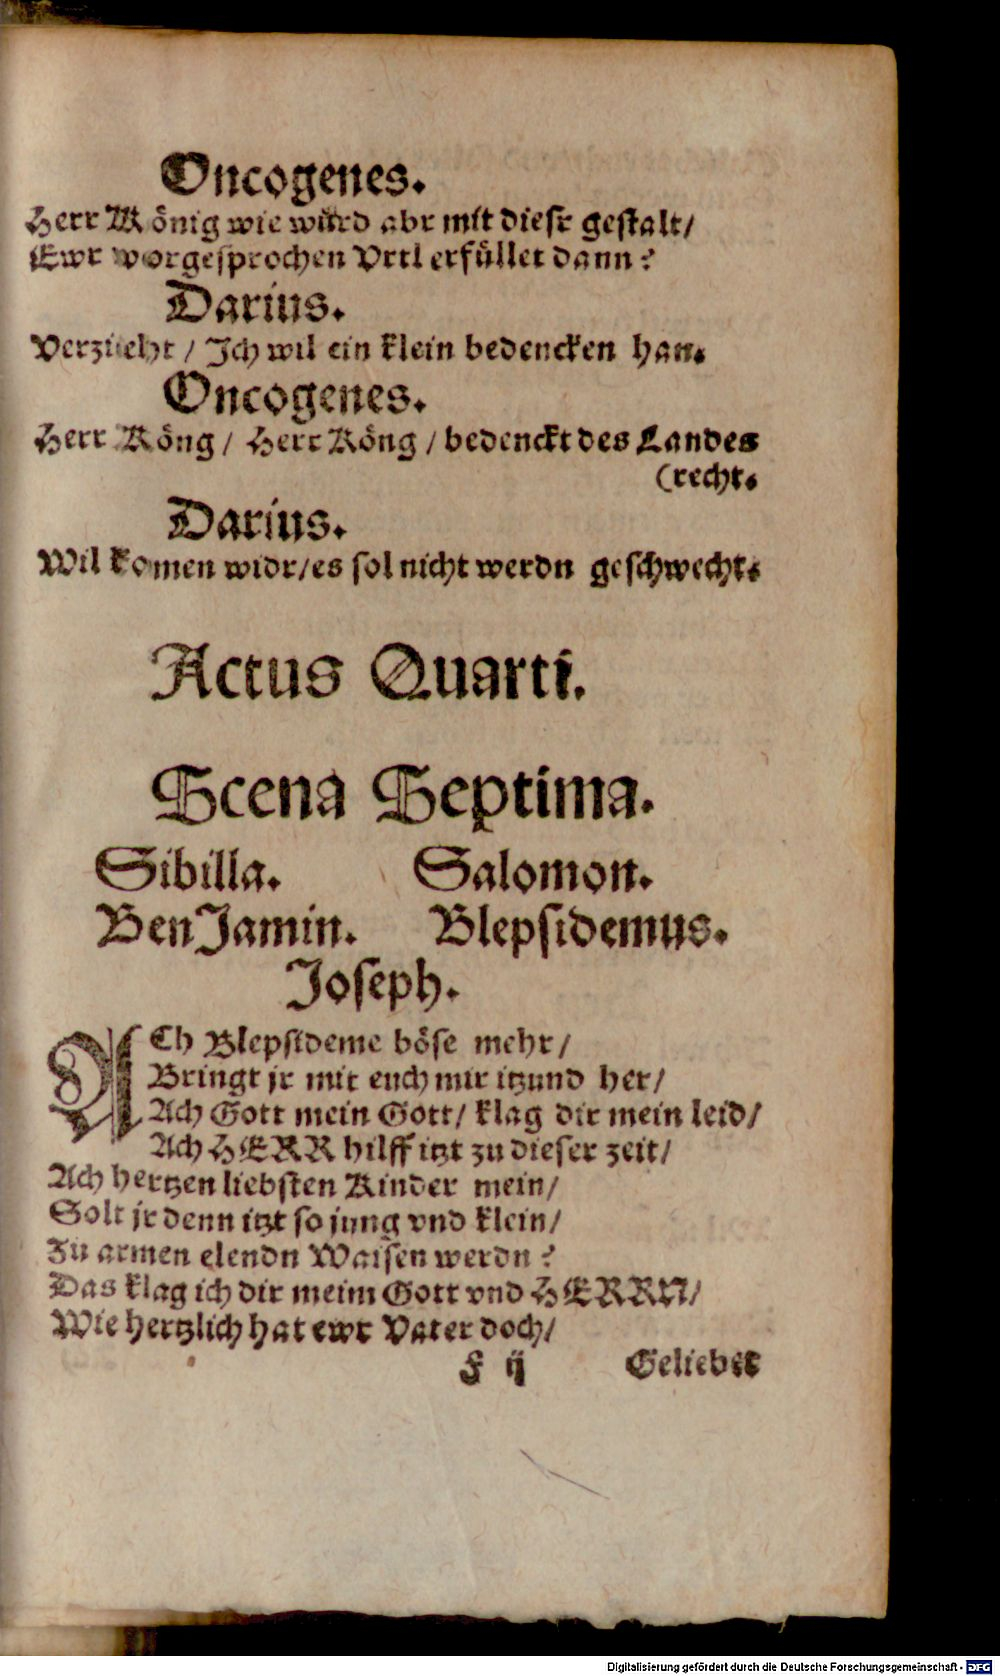 Oncogenes.
Herr König wie würd abr mit diesr gestalt/
Ewr vorgesprochen Vrtl erfüllet dann?
Darius.
Verzüeht / Jch wil ein klein bedencken han.
Oncogenes.
Herr Köng / Herr Köng / bedenckt des Landes
(recht.
Darius.
Wil komen widr/es sol nicht werdn geschwecht.
Actus Quarti.
Scena Septima.
Sibilla. Salomon.
BenJamin. Blepsidemus.
Joseph.
ACh Blepsideme böse mehr/
Bringt jr mit euch mir itzund her/
Ach Gott mein Gott/ klag dir mein leid/
Ach HERR hilff itzt zu dieser zeit/
Ach hertzen liebsten Kinder mein/
Solt jr denn itzt so jung vnd klein/
Zu armen elendn Waisen werdn?
Das klag ich dir meim Gott vnd HERRN/
Wie hertzlich hat ewr Vater doch/
F ij Geliebet
Digitalisierung gefördert durch die Deutsche Forschungsgemeinschaft - DFG